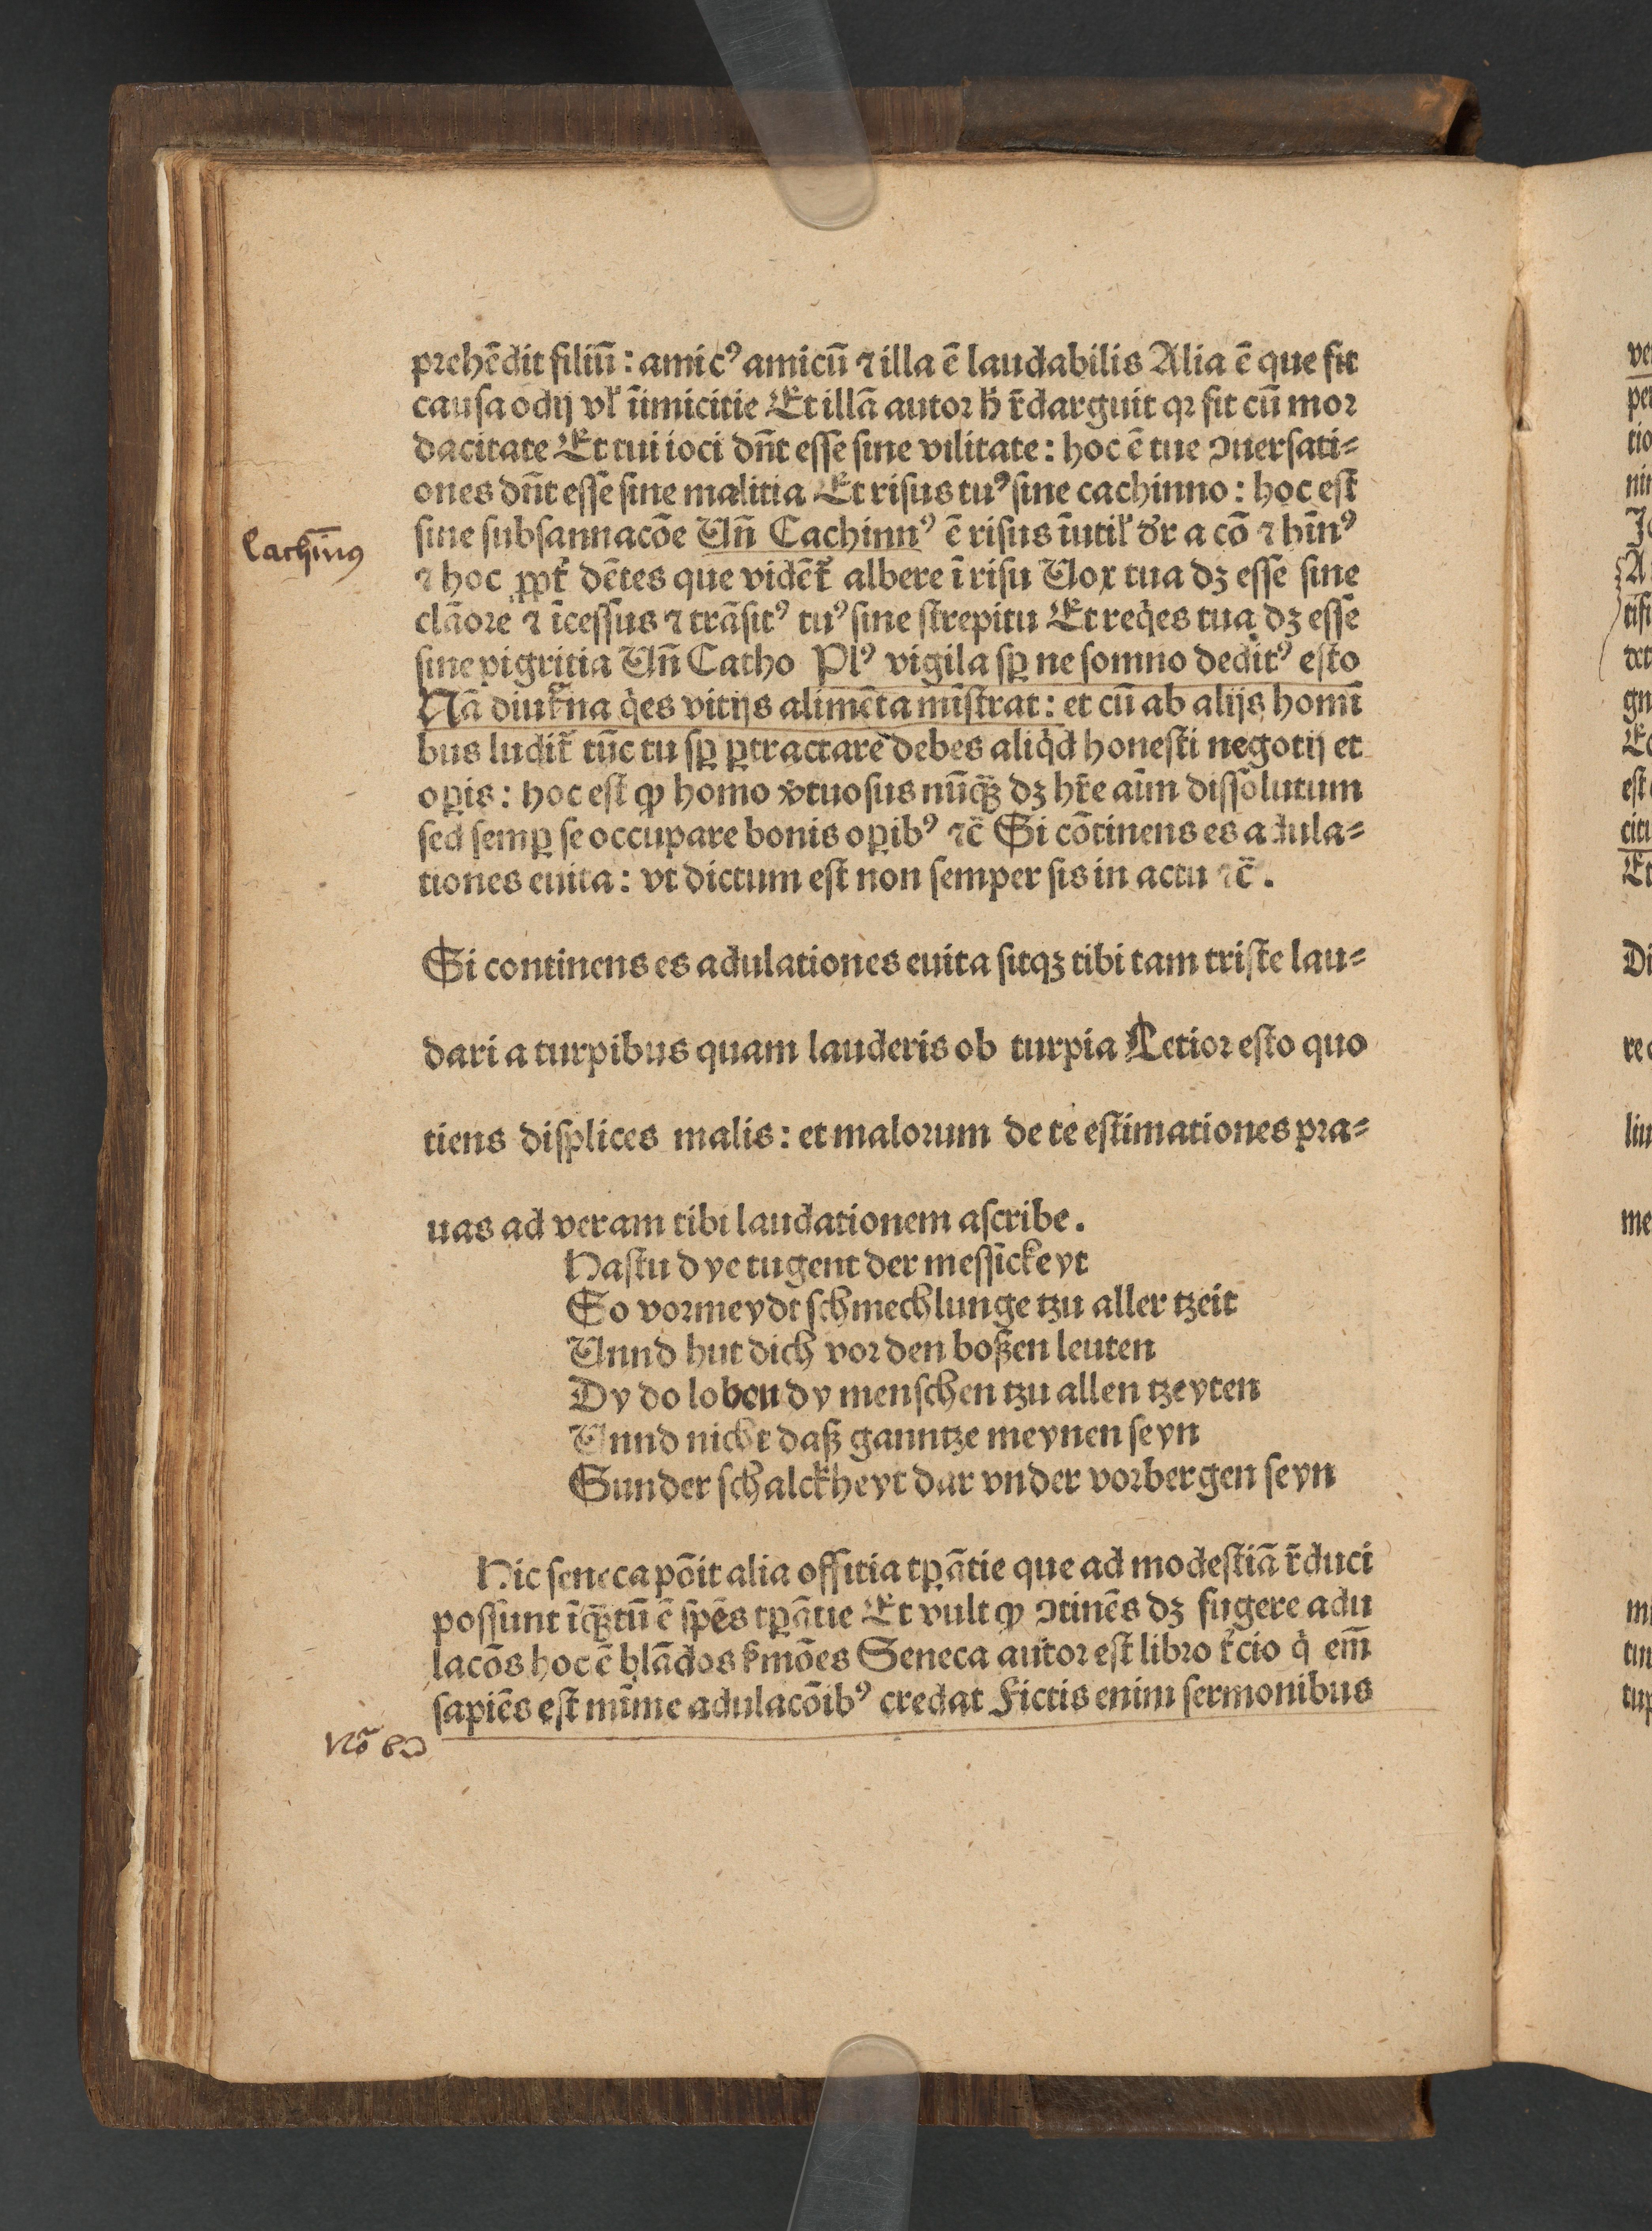 prehēdit filiū : amicꝰ amicū ⁊ illa ē laudabilis Alia ē que fit
causa odij vl̕ īimicitie Et illā autor h̕ r̄darguit qꝛ fit cū mor
dacitate Et tui ioci dn̄t esse sine vilitate : hoc ē tue ↄuersati⸗
ones dn̄t esse sine malitia Et risus tuꝰ sine cachinno : hoc est
sine subsannacōe Un̄ Cachinnꝰ ē risus īutil̕ dr̕ a cō ⁊ hīnꝰ
Cachīnꝰ
⁊ hoc ꝓpt̕ dētes que vidēt̕ albere ī risu Uox tua dꝫ esse sine
clāore ⁊ īcessus ⁊ trāsitꝰ tuꝰ sine strepitu Et reqͥes tua dꝫ esse
sine pigritia Un̄ Catho Plꝰ vigila sꝑ ne somno deditꝰ esto
Nā diut̕na qͥes vitijs alimēta mīstrat : et cū ab alijs homī
bus ludit̕ tūc tu sꝑ ꝑtractare debes aliqͥd honesti negotij et
oꝑis : hoc est ꝙ homo v̕tuosus nūqꝫ dꝫ hr̄e aīm dissolutum
sed semꝑ se occupare bonis oꝑibꝰ ⁊c̄ Si cōtinens es adula⸗
tiones euita : vt dictum est non semper sis in actu ⁊c̄ .
Si continens es adulationes euita sitqꝫ tibi tam triste lau⸗
dari a turpibus quam lauderis ob turpia Letior esto quo
tiens displices malis : et malorum de te estimationes pra⸗
uas ad veram tibi laudationem ascribe .
Hastu dye tugent der messickeyt
So vormeydt schmechlunge tzu aller tzeit
Unnd hut dich vor den boßen leuten
Dy do loben dy menschen tzu allen tzeyten
Unnd nicht daß ganntze meynen seyn
Sunder schalckheyt dar vnder vorbergen seyn
Hic seneca pōit alia offitia tꝑātie que ad modestiā r̄duci
possunt īqꝫtū ē spēs tꝑātie Et vult ꝙ ↄtinēs dꝫ fugere adu
lacōs hoc ē blādos s̕mōes Seneca autor est libro t̕cio qͥ em̄
sapiēs est mīme adulacōibꝰ credat Fictis enim sermonibus